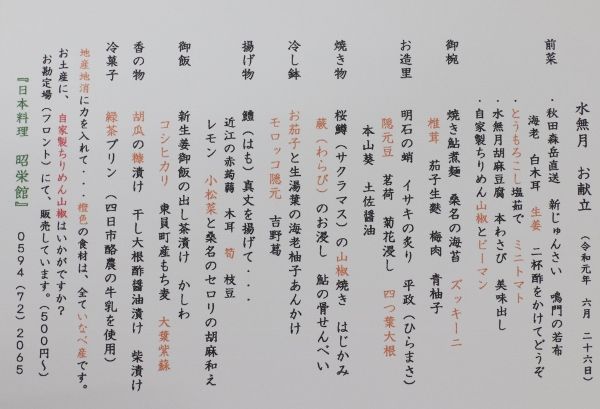 水無月　お献立　（令和元年　六月　二十六日）
前菜
・秋田森岳直送　新じゅんさい　鳴門の若布
海老　白木耳　生姜　二杯酢をかけてどうぞ
・とうもろこし塩茹で　ミニトマト
・水無月胡麻豆腐　本わさび　美味出し
・自家製ちりめん山椒とピーマン
御椀　焼き鮎煮麺　桑名の海苔　ズッキーニ
椎茸　茄子生麩　梅肉　青柚子
お造里　明石の蛸　イサキの炙り　平政（ひらまさ）
隠元豆　茗荷　菊花浸し　四つ葉大根
本山葵　土佐醤油
焼き物　桜鱒（サクラマス）の山椒焼き　はじかみ
蕨（わらび）のお浸し　鮎の骨せんべい
冷し鉢　お茄子と生湯葉の海老柚子あんかけ
モロッコ隠元　吉野葛
揚げ物　鱧（はも）真丈を揚げて・・・
近江の赤蒟蒻　木耳　筍　枝豆
レモン　小松菜と桑名のセロリの胡麻和え
御飯　新生姜御飯の出し茶漬け　かしわ
コシヒカリ　東員町産もち麦　大葉紫蘇
香の物　胡瓜の糠漬け　干し大根酢醤油漬け　柴漬け
冷菓子　緑茶プリン　（四日市酪農の牛乳を使用）
地産地消に力を入れて・・・橙色の食材は、全ていなべ産です。
お土産に、自家製ちりめん山椒はいかがですか？
お勘定場（フロント）にて、販売しています。（５００円～）
『日本料理　昭栄館』　０５９４（７２）２０６５